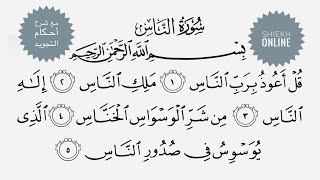 مع شرح
أحكام
التجويد
سُورَةُ النَّاسِ
SHIEKH
ONLINE
بِسْمِ ٱللَّهِ ٱلرَّحْمَٰنِ ٱلرَّحِيمِ
قُلْ أَعُوذُ بِرَبِّ ٱلنَّاسِ ١ مَلِكِ ٱلنَّاسِ ٢ إِلَٰهِ
ٱلنَّاسِ ٣ مِن شَرِّ ٱلْوَسْوَاسِ ٱلْخَنَّاسِ ٤ ٱلَّذِى
يُوَسْوِسُ فِى صُدُورِ ٱلنَّاسِ ٥